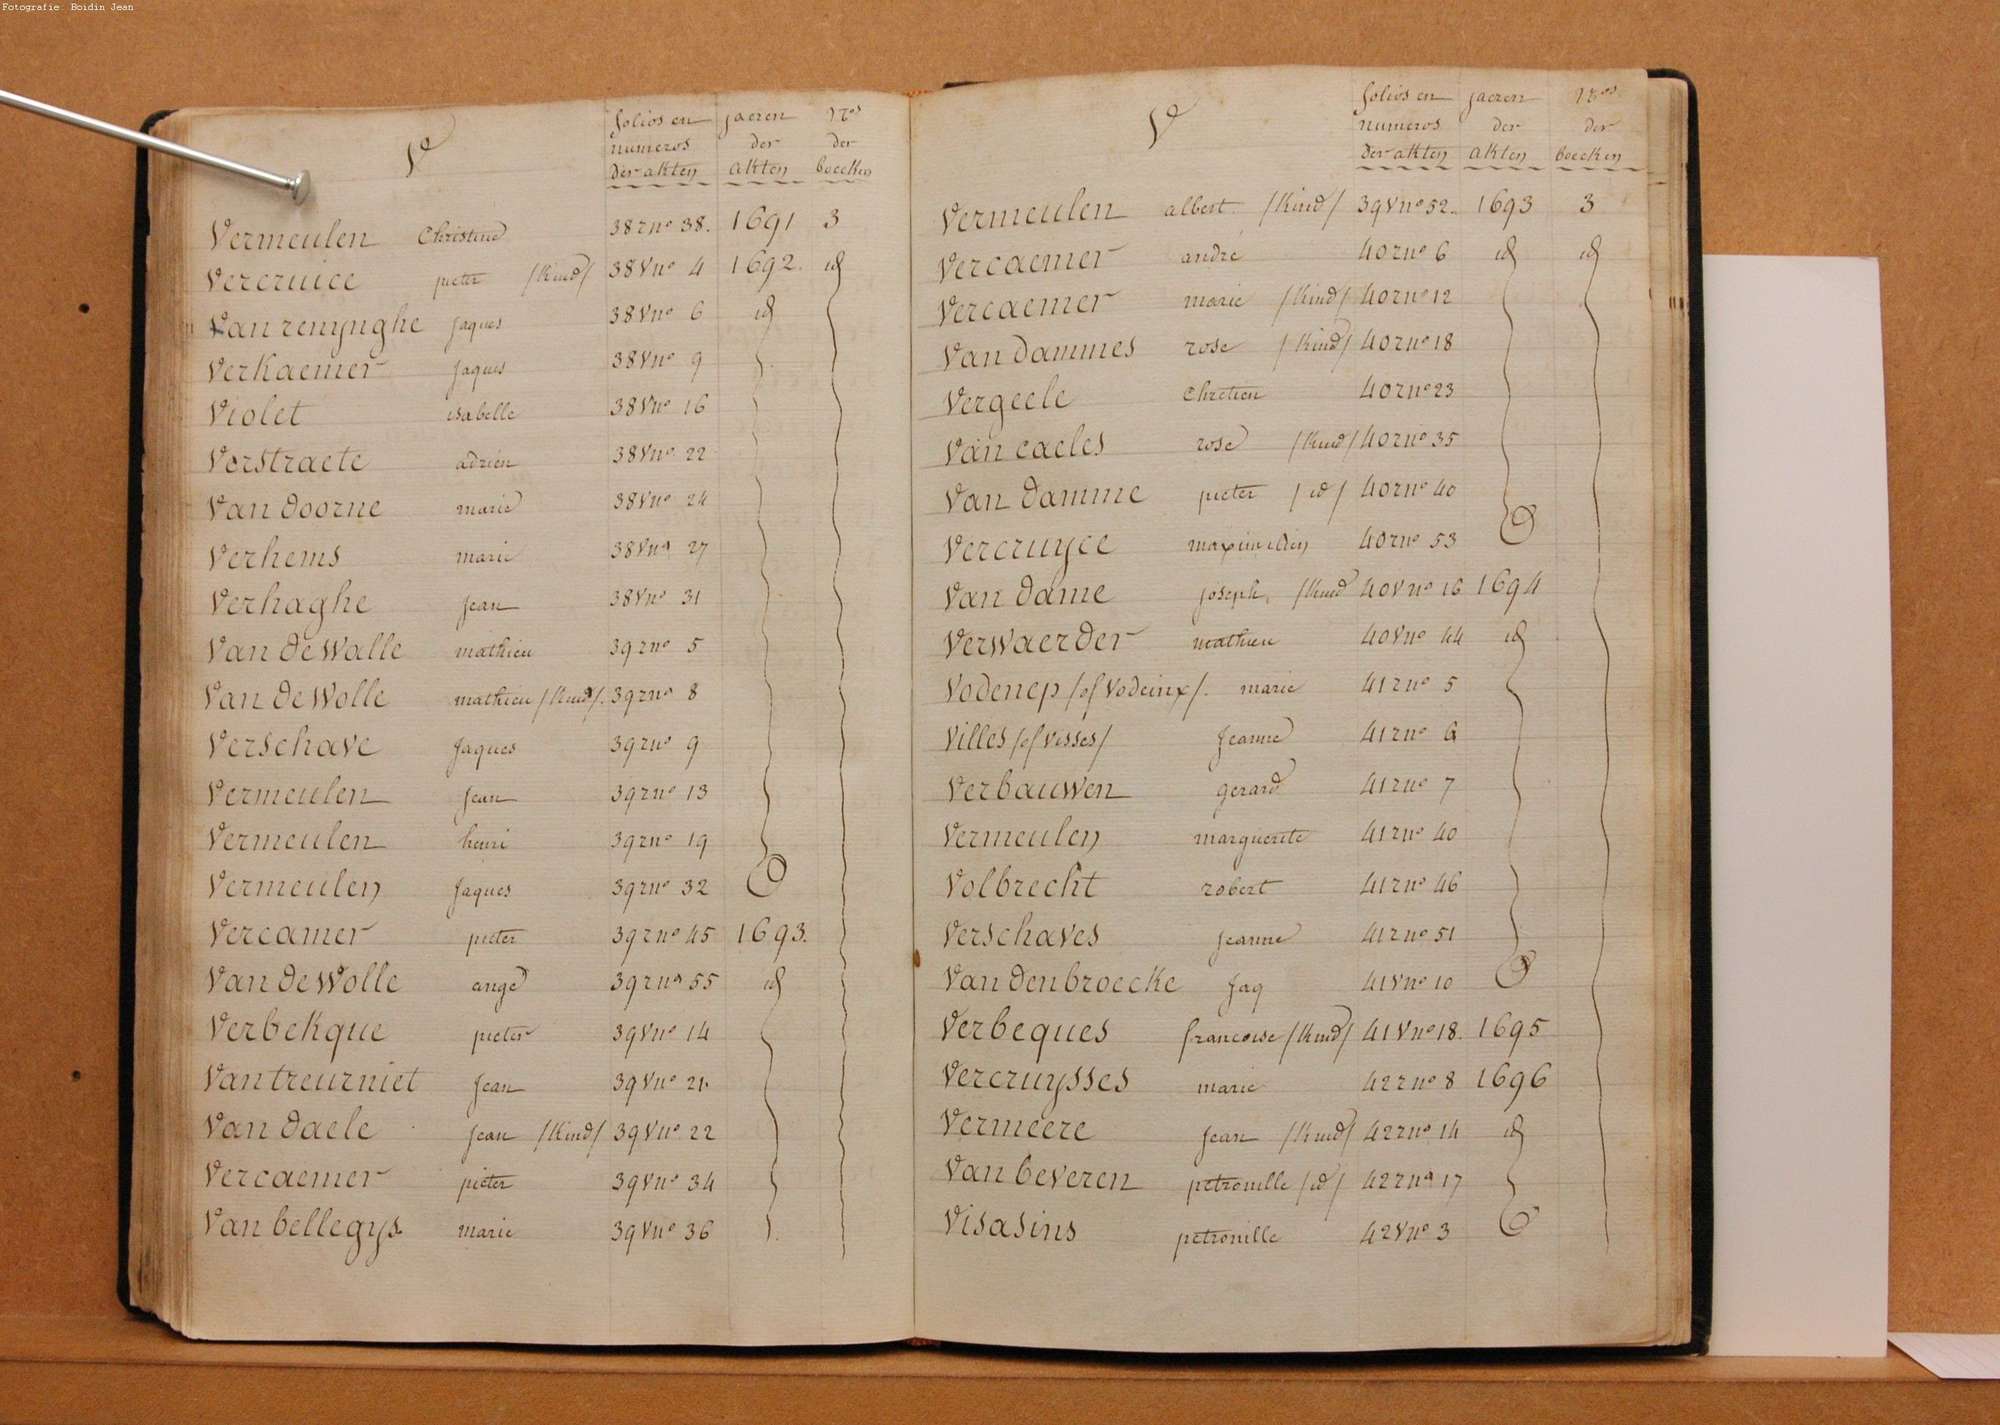 Fotografie: Boidin Jean
V
folios en jaeren nros
numeros der der
der akten akten boecken
Vermeulen Christine 38 r no 38. 1691 3
Vercruice pieter /Kind/ 38 V no 4 1692. id
Van renynghe jaques 38 V no 6 id
VerKaemer jaques 38 V no 9
Violet isabelle 38 V no 16
Verstraete adrien 38 V no 22
Van doorne marie 38 V no 24
Verhems marie 38 V no 27
Verhaghe jean 38 V no 31
Van de Walle mathieu 39 r no 5
Van de Wolle mathieu /Kind/. 39 r no 8
Verschave jaques 39 r no 9
Vermeulen jean 39 r no 13
Vermeulen henri 39 r no 19
Vermeulen jaques 39 r no 32
Vercamer pieter 39 r no 45 1693.
Van de Wolle ange 39 r no 55 id
Verbekque pieter 39 V no 14
Van treurniet jean 39 V no 21.
Van daele jean /Kind/ 39 V no 22
Vercaemer pieter 39 V no 34
Van bellegys marie 39 V no 36
V
folios en jaeren nros
numeros der der
der akten akten boecken
Vermeulen albert /Kind/ 39 V no 52. 1693 3
Vercaemer andré 40 r no 6 id id
Vercaemer marie /Kind/ 40 r no 12
Van Dammes rose /Kind/ 40 r no 18
Vergeele Chretien 40 r no 23
Van eacles rose /Kind/ 40 r no 35
Van Damme pieter /id/ 40 r no 40
Vercruyce 40 r no 53
Van Dame joseph /Kind 40 V no 16 1694
Verwaerder mathieu 40 V no 44 id
Vodenep /of Vodeinx/. marie 41 r no 5
Villes /of visses/ jeanne 41 r no 6
Verbauwen gerard 41 r no 7
Vermeulen marguerite 41 r no 40
Volbrecht robert 41 r no 46
Verschaves jeanne 41 r no 51
Van den broecke jaq 41 V no 10
Verbeques francoise /Kind/ 41 V no 18. 1695
Vercruysses marie 42 r no 8 1696
Vermeere jean /Kind/ 42 r no 14 id
Van beveren petronille /id/ 42 r no 17
Visasins petronille 42 V no 3